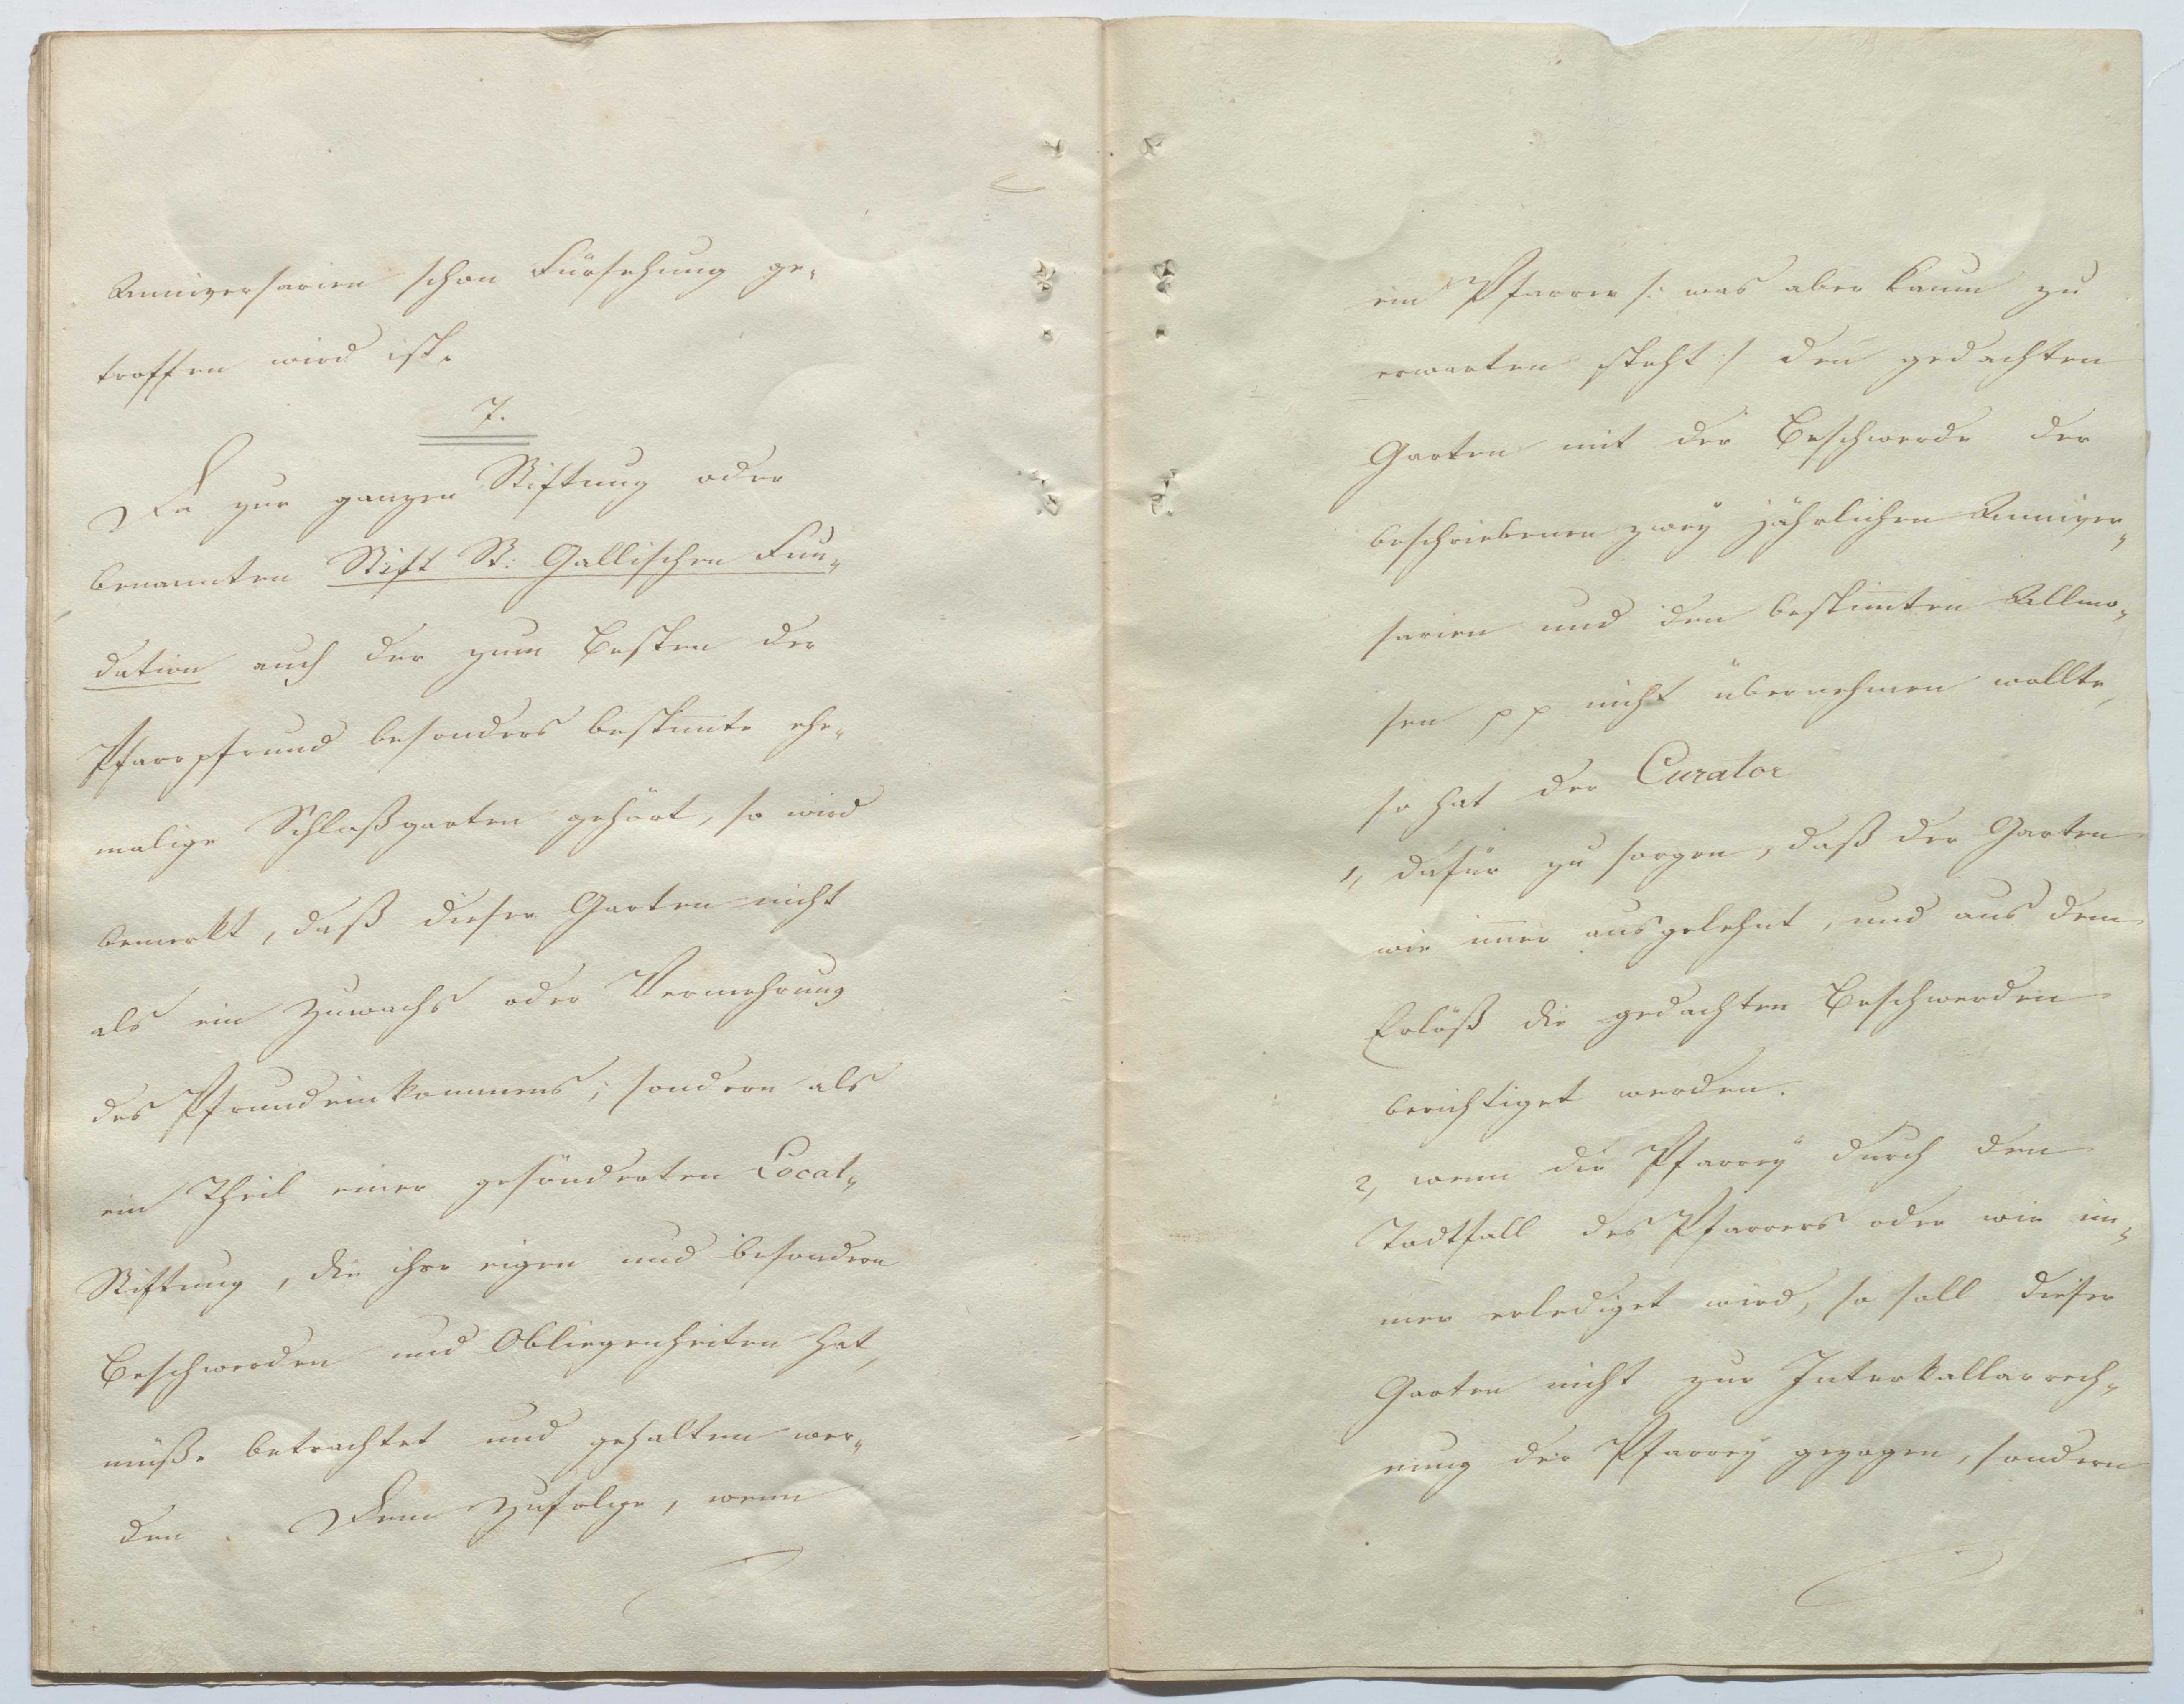 Anniversarien schon Fürsehung ge-
troffen wird ist.
7.
Da zur ganzen Stiftung oder
benannten Stift St: Gallischen Fun-
dation auch der zum Besten der
Pfarrpfrund besonders bestim̄te ehe-
malige Schloßgarten gehört, so wird
bemerkt, daß dieser Garten nicht
als ein Zuwachs oder Vermehrung
des Pfrundeinkommens; sondern als
ein Theil einer gesönderten Local-
Stiftung, die ihre eigen und besondern
Beschwerden und Obliegenheiten hat,
müße betrachtet und gehalten wer-
den. Dem zufolge, wenn
ein Pfarrer /: was aber kaum zu
erwarten steht :/ den gedachten
Garten mit der Beschwerde der
beschriebenen zwey jährlichen Anniver-
sarien und den bestim̄ten Allmo-
sen pp nicht übernehmen wollte,
so hat der Curator
1, dafür zu sorgen, daß der Garten
wie im̄er ausgelehnt, und aus dem
Erlöß die gedachten Beschwerden
berichtiget werden.
2, wenn die Pfarrey durch den
Todtfall des Pfarrers oder wie im-
mer erlediget wird, so soll dieser
Garten nicht zur Interkallarrech-
nung der Pfarrey gezogen, sondern